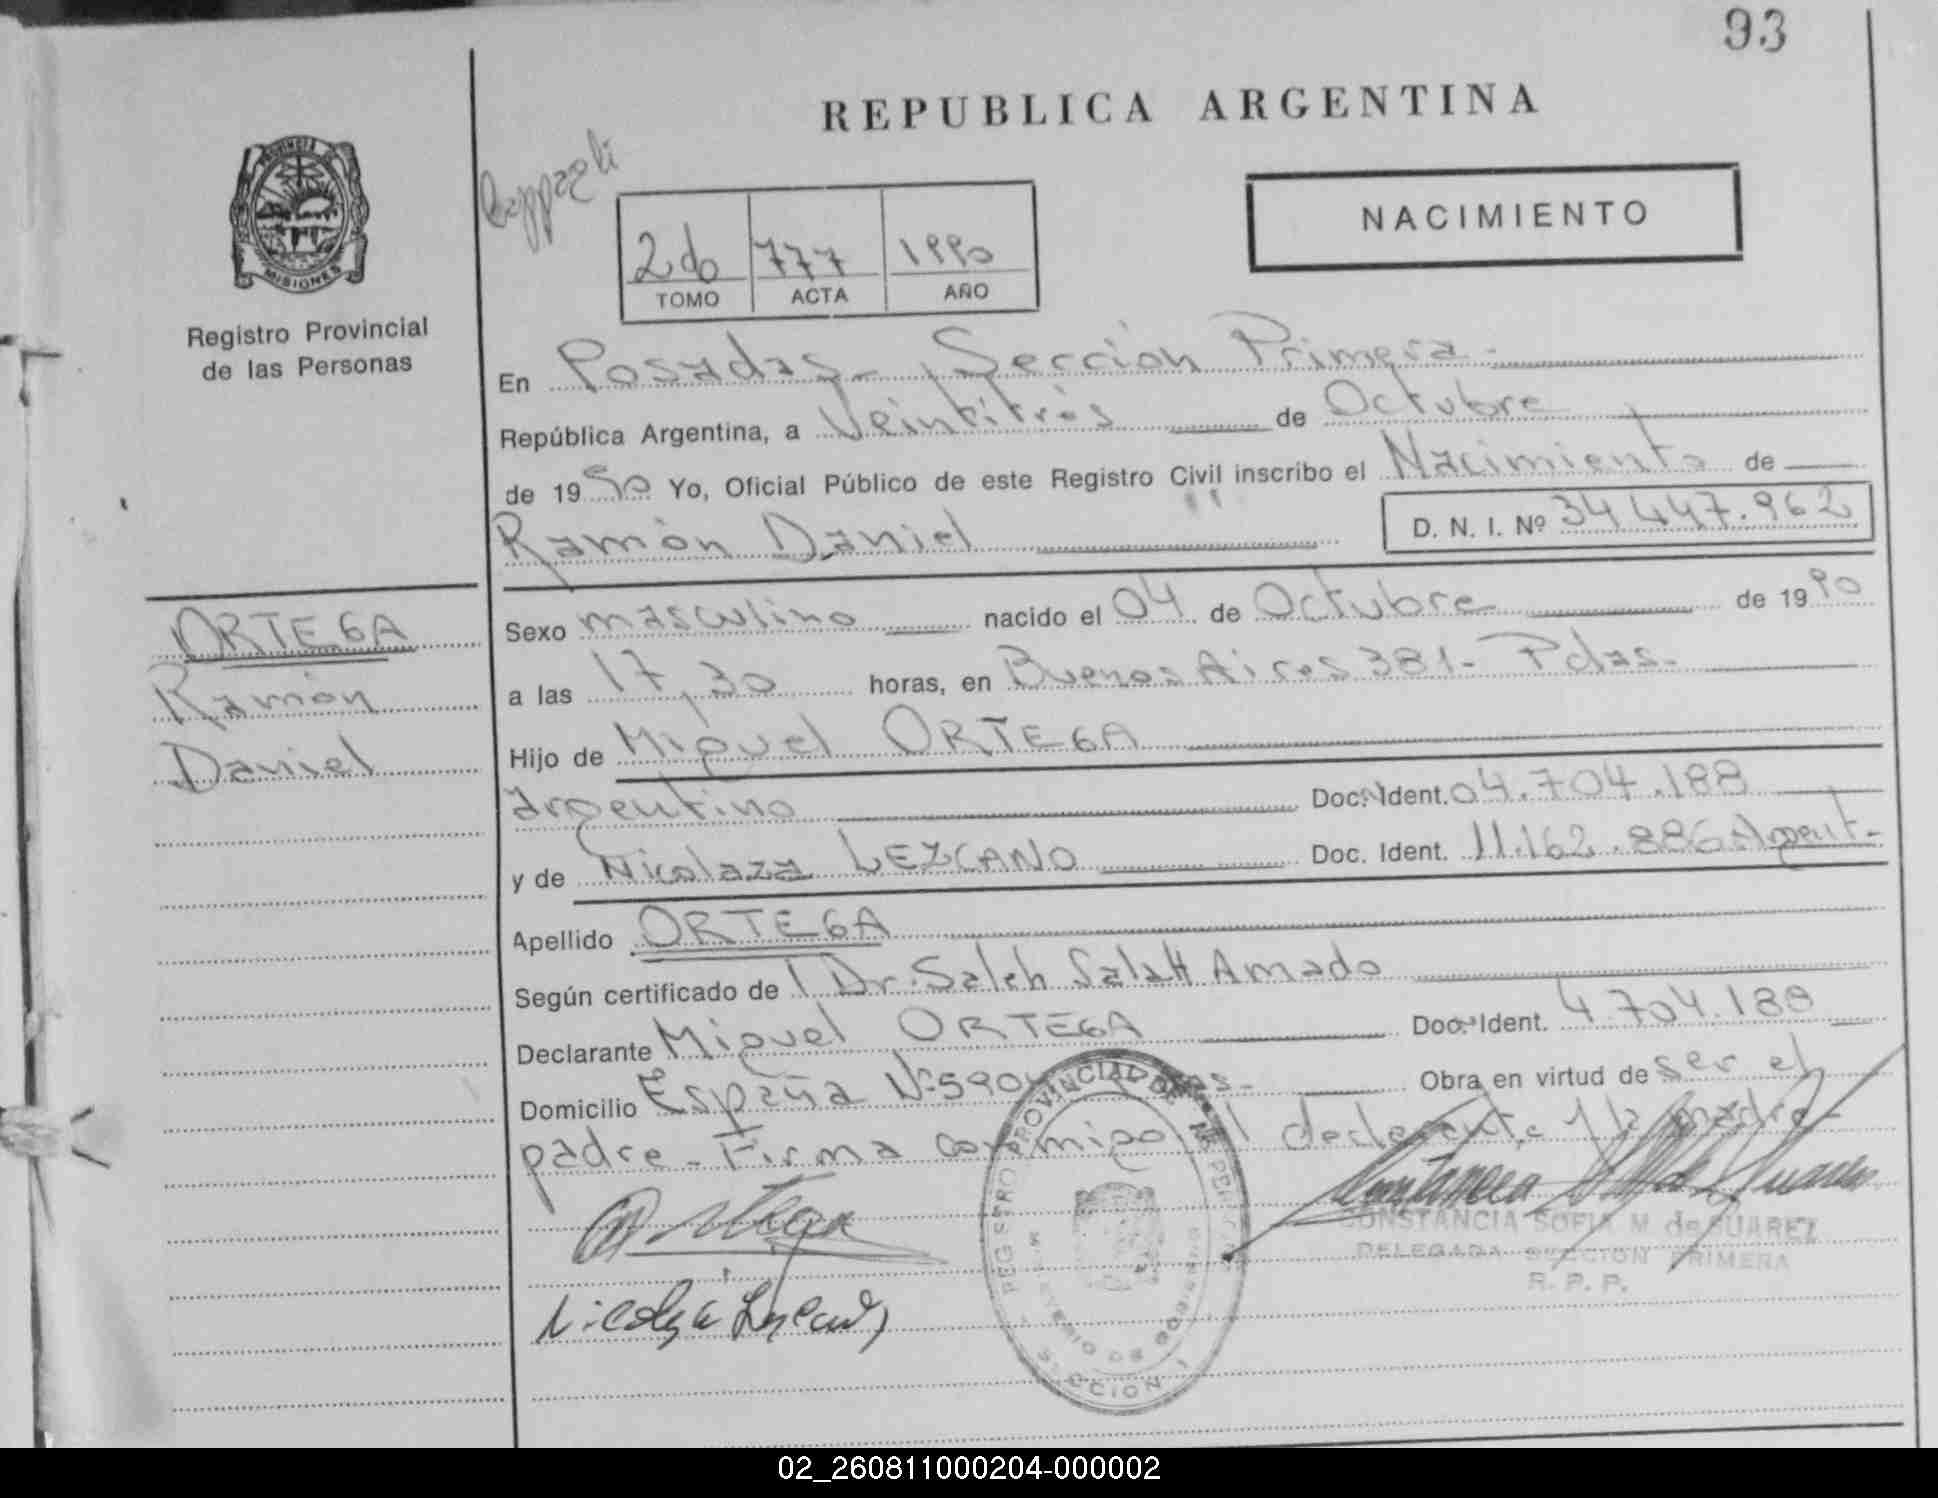 93
REPUBLICA ARGENTINA
NACIMIENTO
2do 777 1990
TOMO ACTA AÑO
PROVINCIA DE
MISIONES
Registro Provincial
de las Personas
En Posadas - Sección Primera -
República Argentina, a Veintitrés de Octubre
de 1990 Yo, Oficial Público de este Registro Civil inscribo el Nacimiento de
Ramón Daniel D. N. I. Nº 34 447.962
ORTEGA
Ramón
Daniel
Sexo masculino nacido el 04 de Octubre de 1990
a las 17,30 horas, en Buenos Aires 381 - Pdas -
Hijo de Miguel ORTEGA
argentino Doc. Ident. 04.704.188
y de Nicolaza LEZCANO Doc. Ident. 11.162.886 Argent -
Apellido ORTEGA
Según certificado de Dr. Saleh Salatt Amado
Declarante Miguel ORTEGA Doc. Ident. 4.704.188
Domicilio España Nº 590 Obra en virtud de ser el
padre - Firma conmigo el declarante y la madre -
Ortega
CONSTANCIA SOFIA M. de SUAREZ
DELEGADA SECCION PRIMERA
R. P. P.
REGISTRO PROVINCIAL DE
MINISTERIO DE GOBIERNO
SECCION 1
02_260811000204-000002